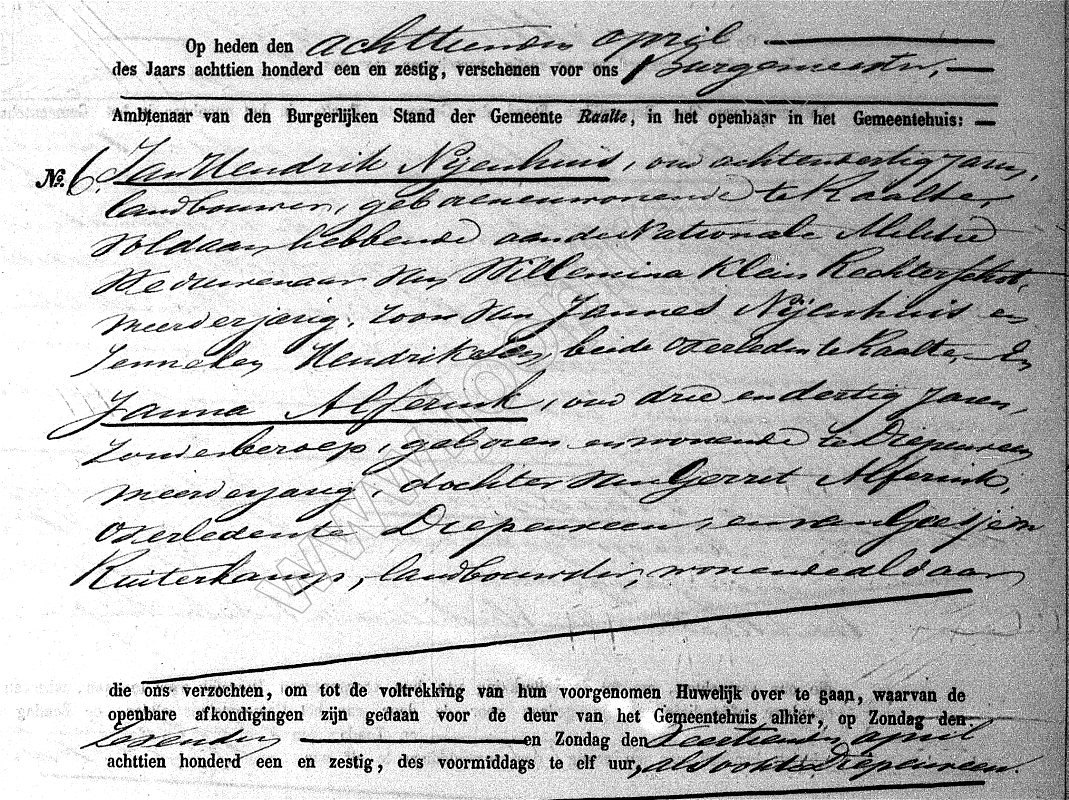 Op heden den achttienden april
des Jaars achttien honderd een en zestig, verschenen voor ons Burgemeester,
Ambtenaar van den Burgerlijken Stand der Gemeente Raalte, in het openbaar in het Gemeentehuis:
No. 6. Jan Hendrik Nijenhuis, oud achtenveertig jaren,
landbouwer, geboren en wonende te Raalte,
voldaan hebbende aan de Nationale Militie
Weduwenaar van Willemina Klein Rechterschot,
meerderjarig, zoon van Jannes Nijenhuis en
Jenneken Hendriksen, beide overleden te Raalte, En
Janna Alferink, oud drie en dertig jaren,
zonder beroep, geboren en wonende te Diepenveen
meerderjarig, dochter van Gerret Alferink,
overleden te Diepenveen, en van Geesjen
Ruiterkamp, landbouwster, wonende aldaar
die ons verzochten, om tot de voltrekking van hun voorgenomen Huwelijk over te gaan, waarvan de
openbare afkondigingen zijn gedaan voor de deur van het Gemeentehuis alhier, op Zondag den
zevenden en Zondag den veertienden april
achttien honderd een en zestig, des voormiddags te elf uur, als ook te Diepenveen.